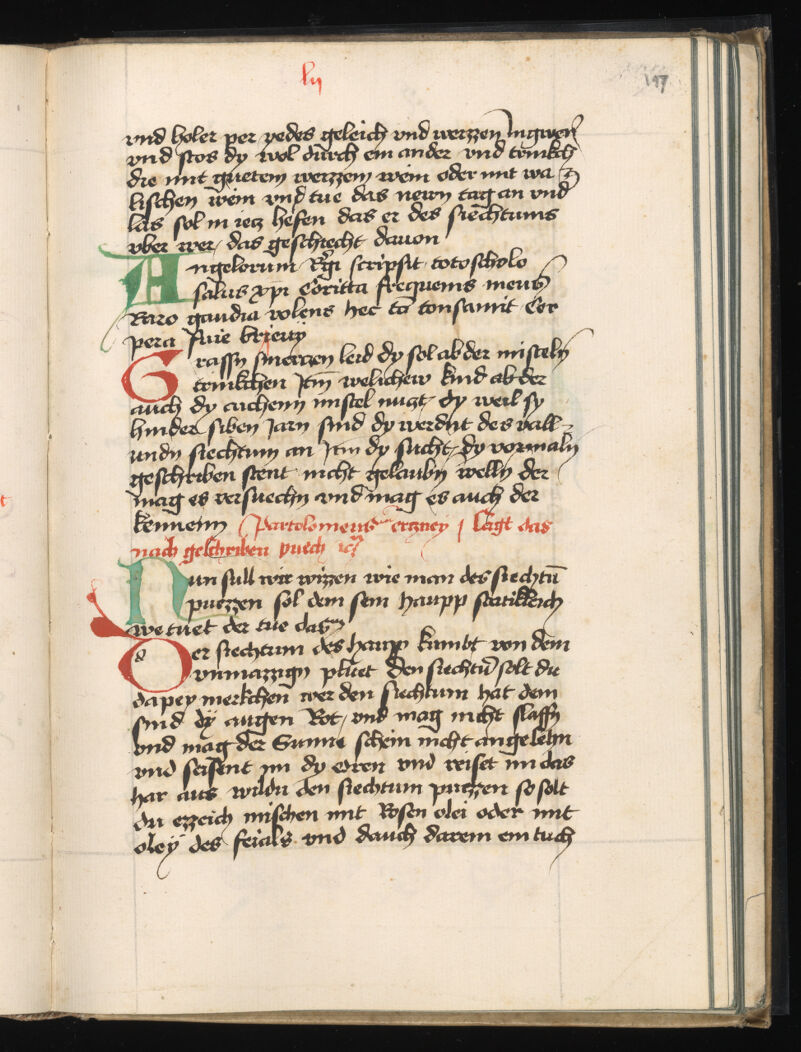 lij
197
vnd holer per yedes geleich vnd werzzen Ingwer
vnd stos dy wol durch ein ander vnd trinkch
die mit guetem werzzem wein oder mit wa
lischen wein vnd tue das newn tag an vnd
las sol in ietz hefen das er des siechtums
vber wer das geschiecht dauon
Angelorum Rgi scripsit toto scholo
salus xpi frequens
Raro gaudia volens hec
pera
Grassn smerczen leid dy sol ab der misteln
trinkchen Itm welichew kind ab der
auch dy aichenn mistel nuczt dy weil sy
hinder siben Jarn sind dy werdnt des vall
undn siechtum an Itm dy sucht dy vormaln
geschriben stent nicht gelaubn welln der
mag es versuechn vnd mag es auch der
kennenn Partolomeus erczney sagt das
nach geschriben puech
Nun sull wir wizzen wie man des siechtū
puezzen sol dem sein haupp stetikleich
we tuet der tue das
Der siechtum des haupp kumbt von dem
vnmazzign pluet den siechtū solt du
da pey merkchen wer den siechtum hat dem
sind dy augen Rot vnd mag nicht slaffn
vnd mag der Sunne schein nicht angesehn
vnd im dy oren vnd reiset im das
har aus wildu den siechtum puezzen so solt
du ezzeich mischen mit Rosen olei oder mit
oley des feials vnd dauch darein ein tuch